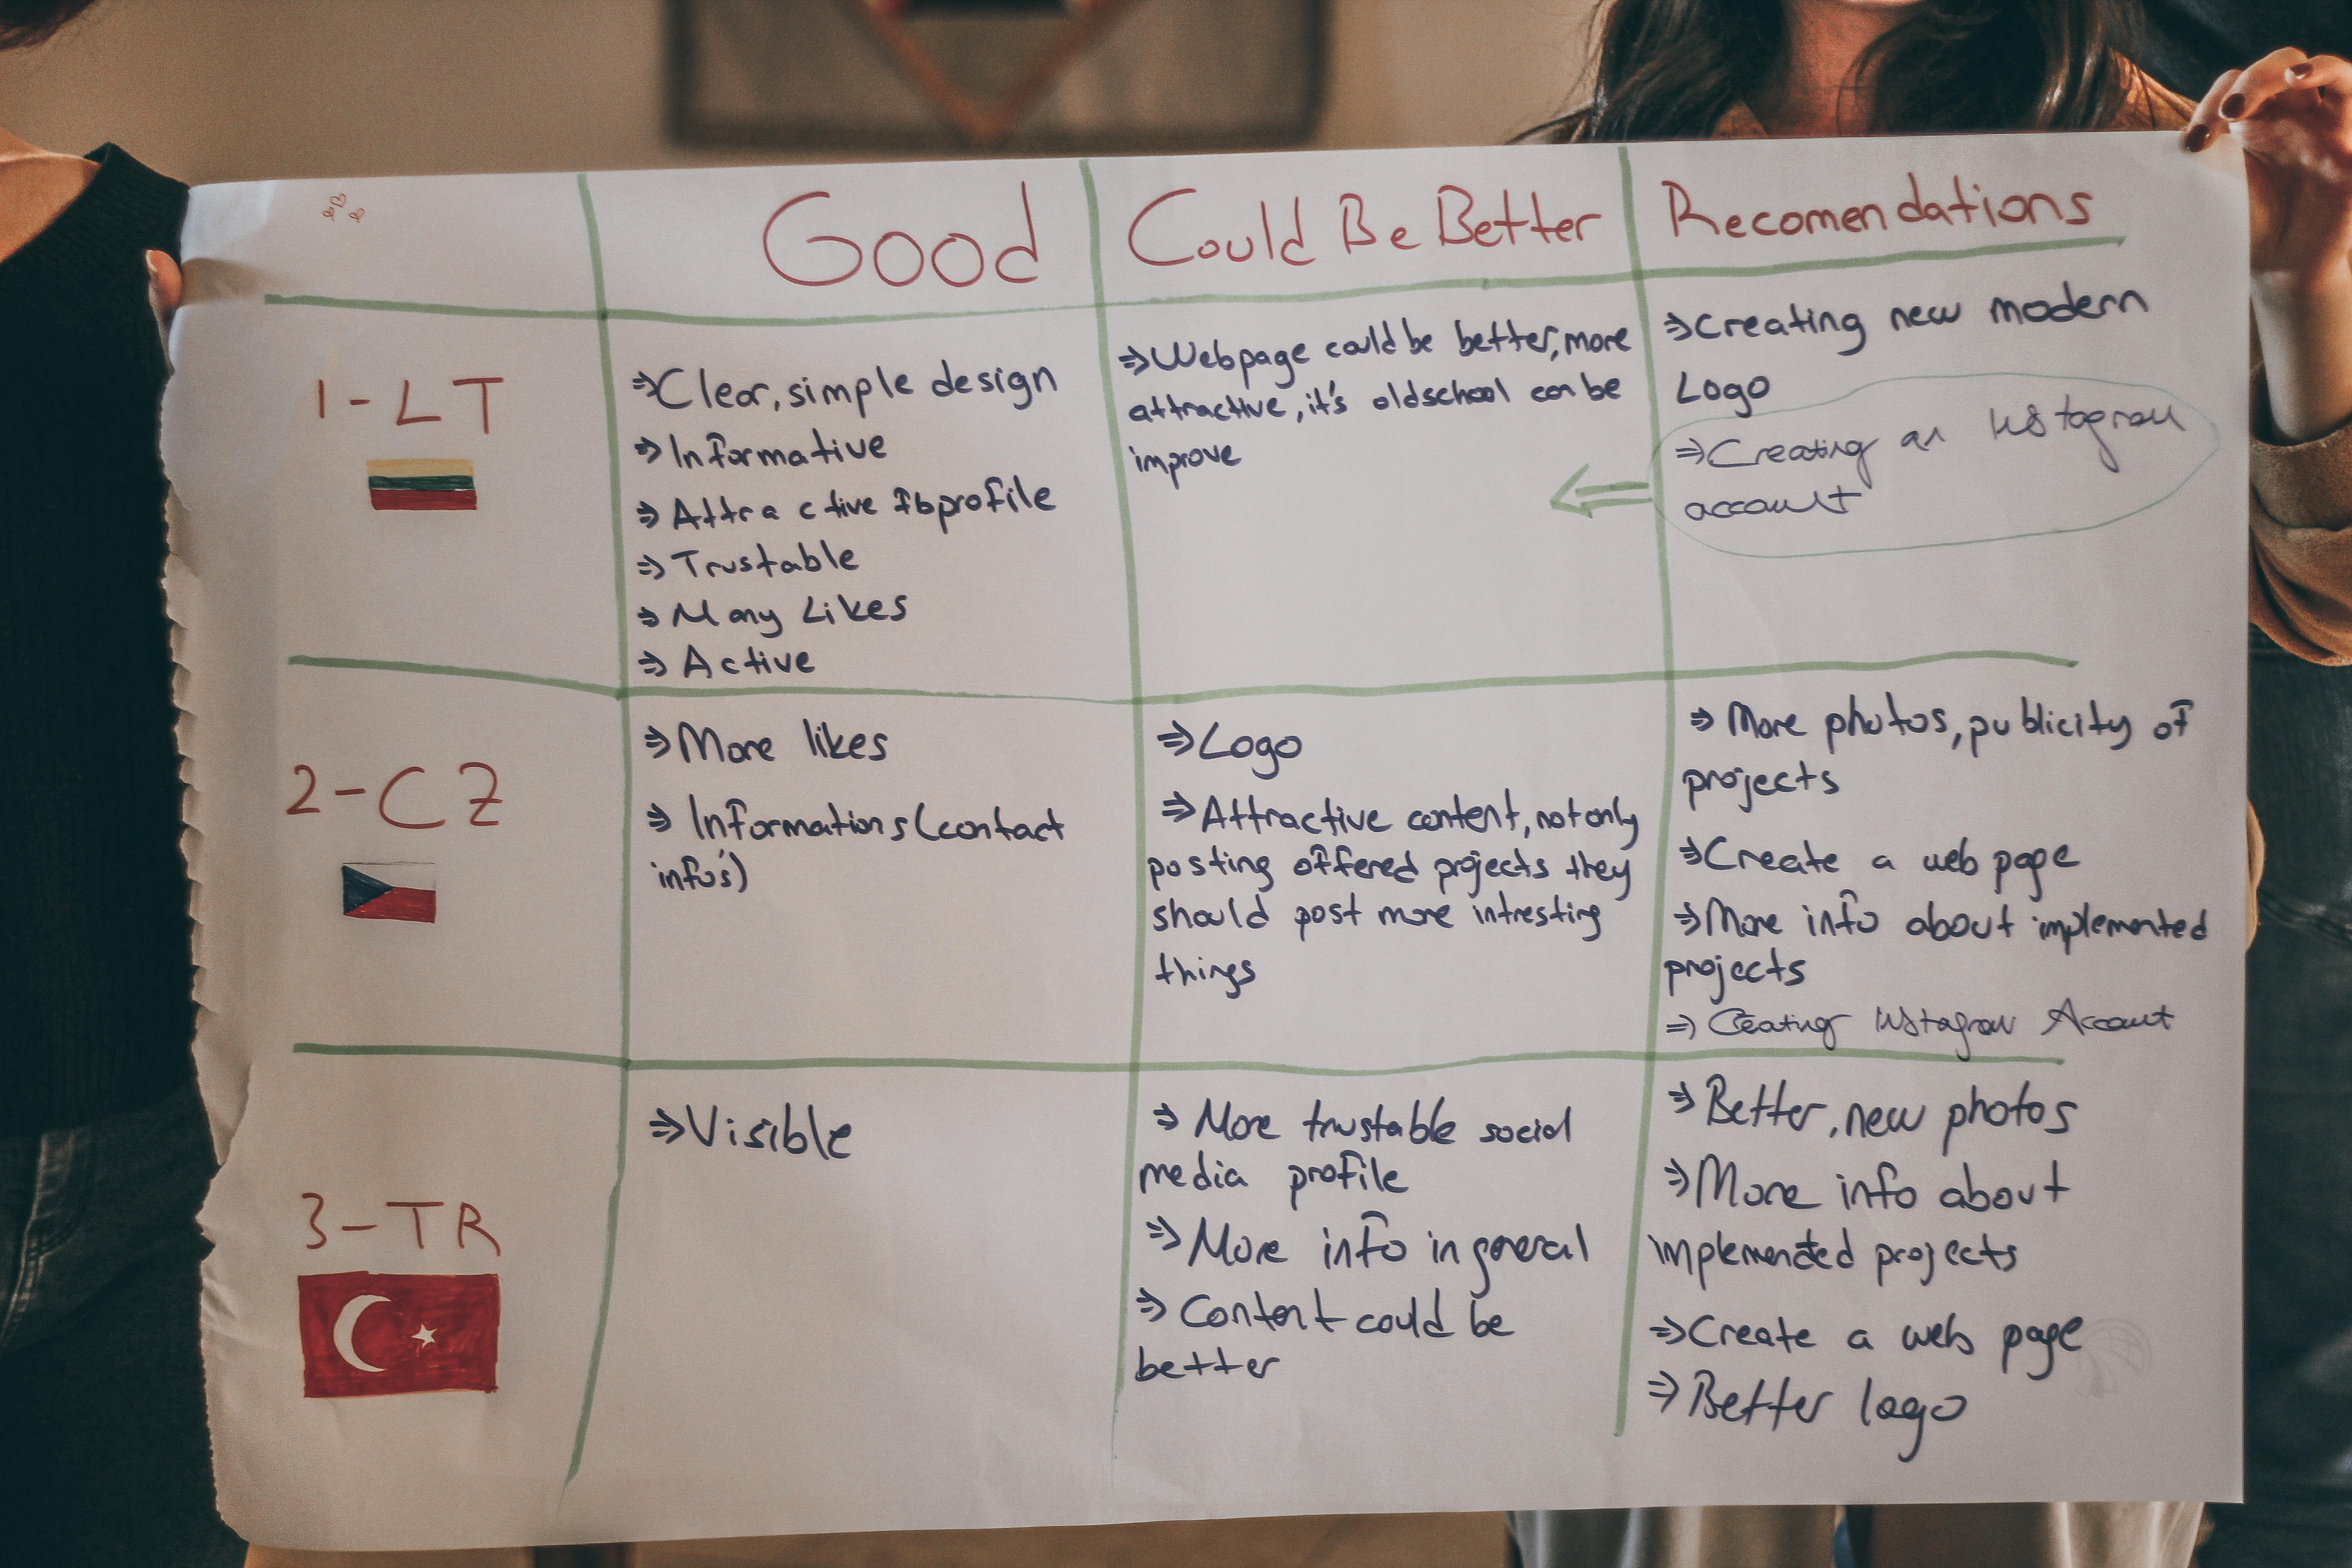 Good
Could Be Better
Recomendations
1-LT
⇒Clear, simple design
⇒Informative
⇒Attractive fbprofile
⇒Trustable
⇒Many Likes
⇒Active
⇒Webpage could be better, more
attractive, it's oldschool can be
improve
⇒Creating new modern
Logo
⇒Creating an Instagram
account
2-CZ
⇒More likes
⇒Informations (contact
info's)
⇒Logo
⇒Attractive content, not only
posting offered projects they
should post more intresting
things
⇒More photos, publicity of
projects
⇒Create a web page
⇒More info about implemented
projects
⇒Creating Instagram Account
3-TR
⇒Visible
⇒More trustable social
media profile
⇒More info in general
⇒Content could be
better
⇒Better, new photos
⇒More info about
implemented projects
⇒Create a web page
⇒Better logo